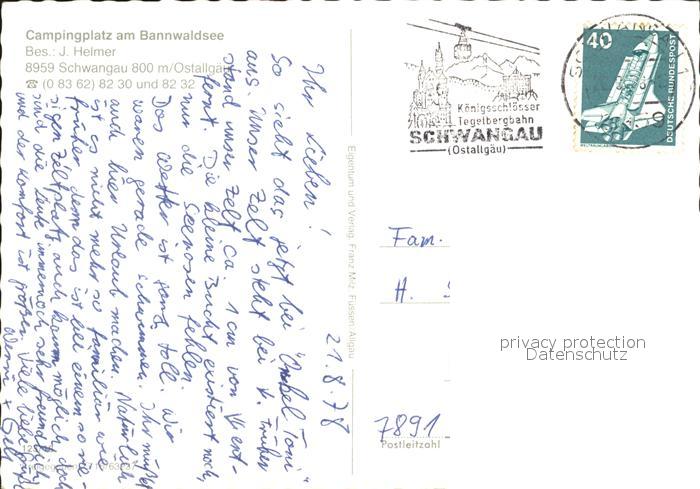 Campingplatz am Bannwaldsee
Bes.: J. Helmer
8959 Schwangau 800 m/Ostallgäu
☎ (0 83 62) 82 30 und 82 32
Königsschlösser
Tegelbergbahn
SCHWANGAU
(Ostallgäu)
40
DEUTSCHE BUNDESPOST
21.8.78
Ihr Lieben!
So sieht das jetzt bei "Onkel Toni"
aus. Unser Zelt steht bei X. Früher
stand unser Zelt ca. 1 cm von X ent-
fernt. Die kleine Bucht existiert noch,
nur die Seerosen fehlen.
Das Wetter ist ganz toll. Wir
waren gerade schwimmen. Ihr müßtet
auch hier Urlaub machen. Natürlich
ist es nicht mehr so familiär wie
früher, denn das ist bei einem so rie-
sigen Zeltplatz auch kaum möglich, doch
sind die Leute immernoch sehr freundlich
und der Komfort ist größer. Viele liebe Grüße
Eigentum und Verlag: Franz Milz, Füssen/Allgäu
Fam.
H.
7891
Postleitzahl
privacy protection
Datenschutz